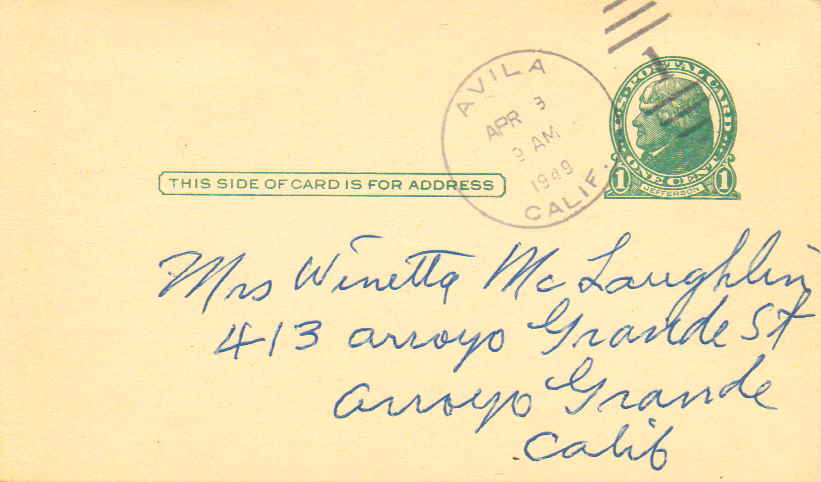 AVILA
APR 3
9 AM
1949
CALIF.
1
U.S. POSTAL CARD
ONE CENT
1 JEFFERSON 1
THIS SIDE OF CARD IS FOR ADDRESS
Mrs Winetta McLaughlin
413 arroyo Grande St
arroyo Grande
Calif